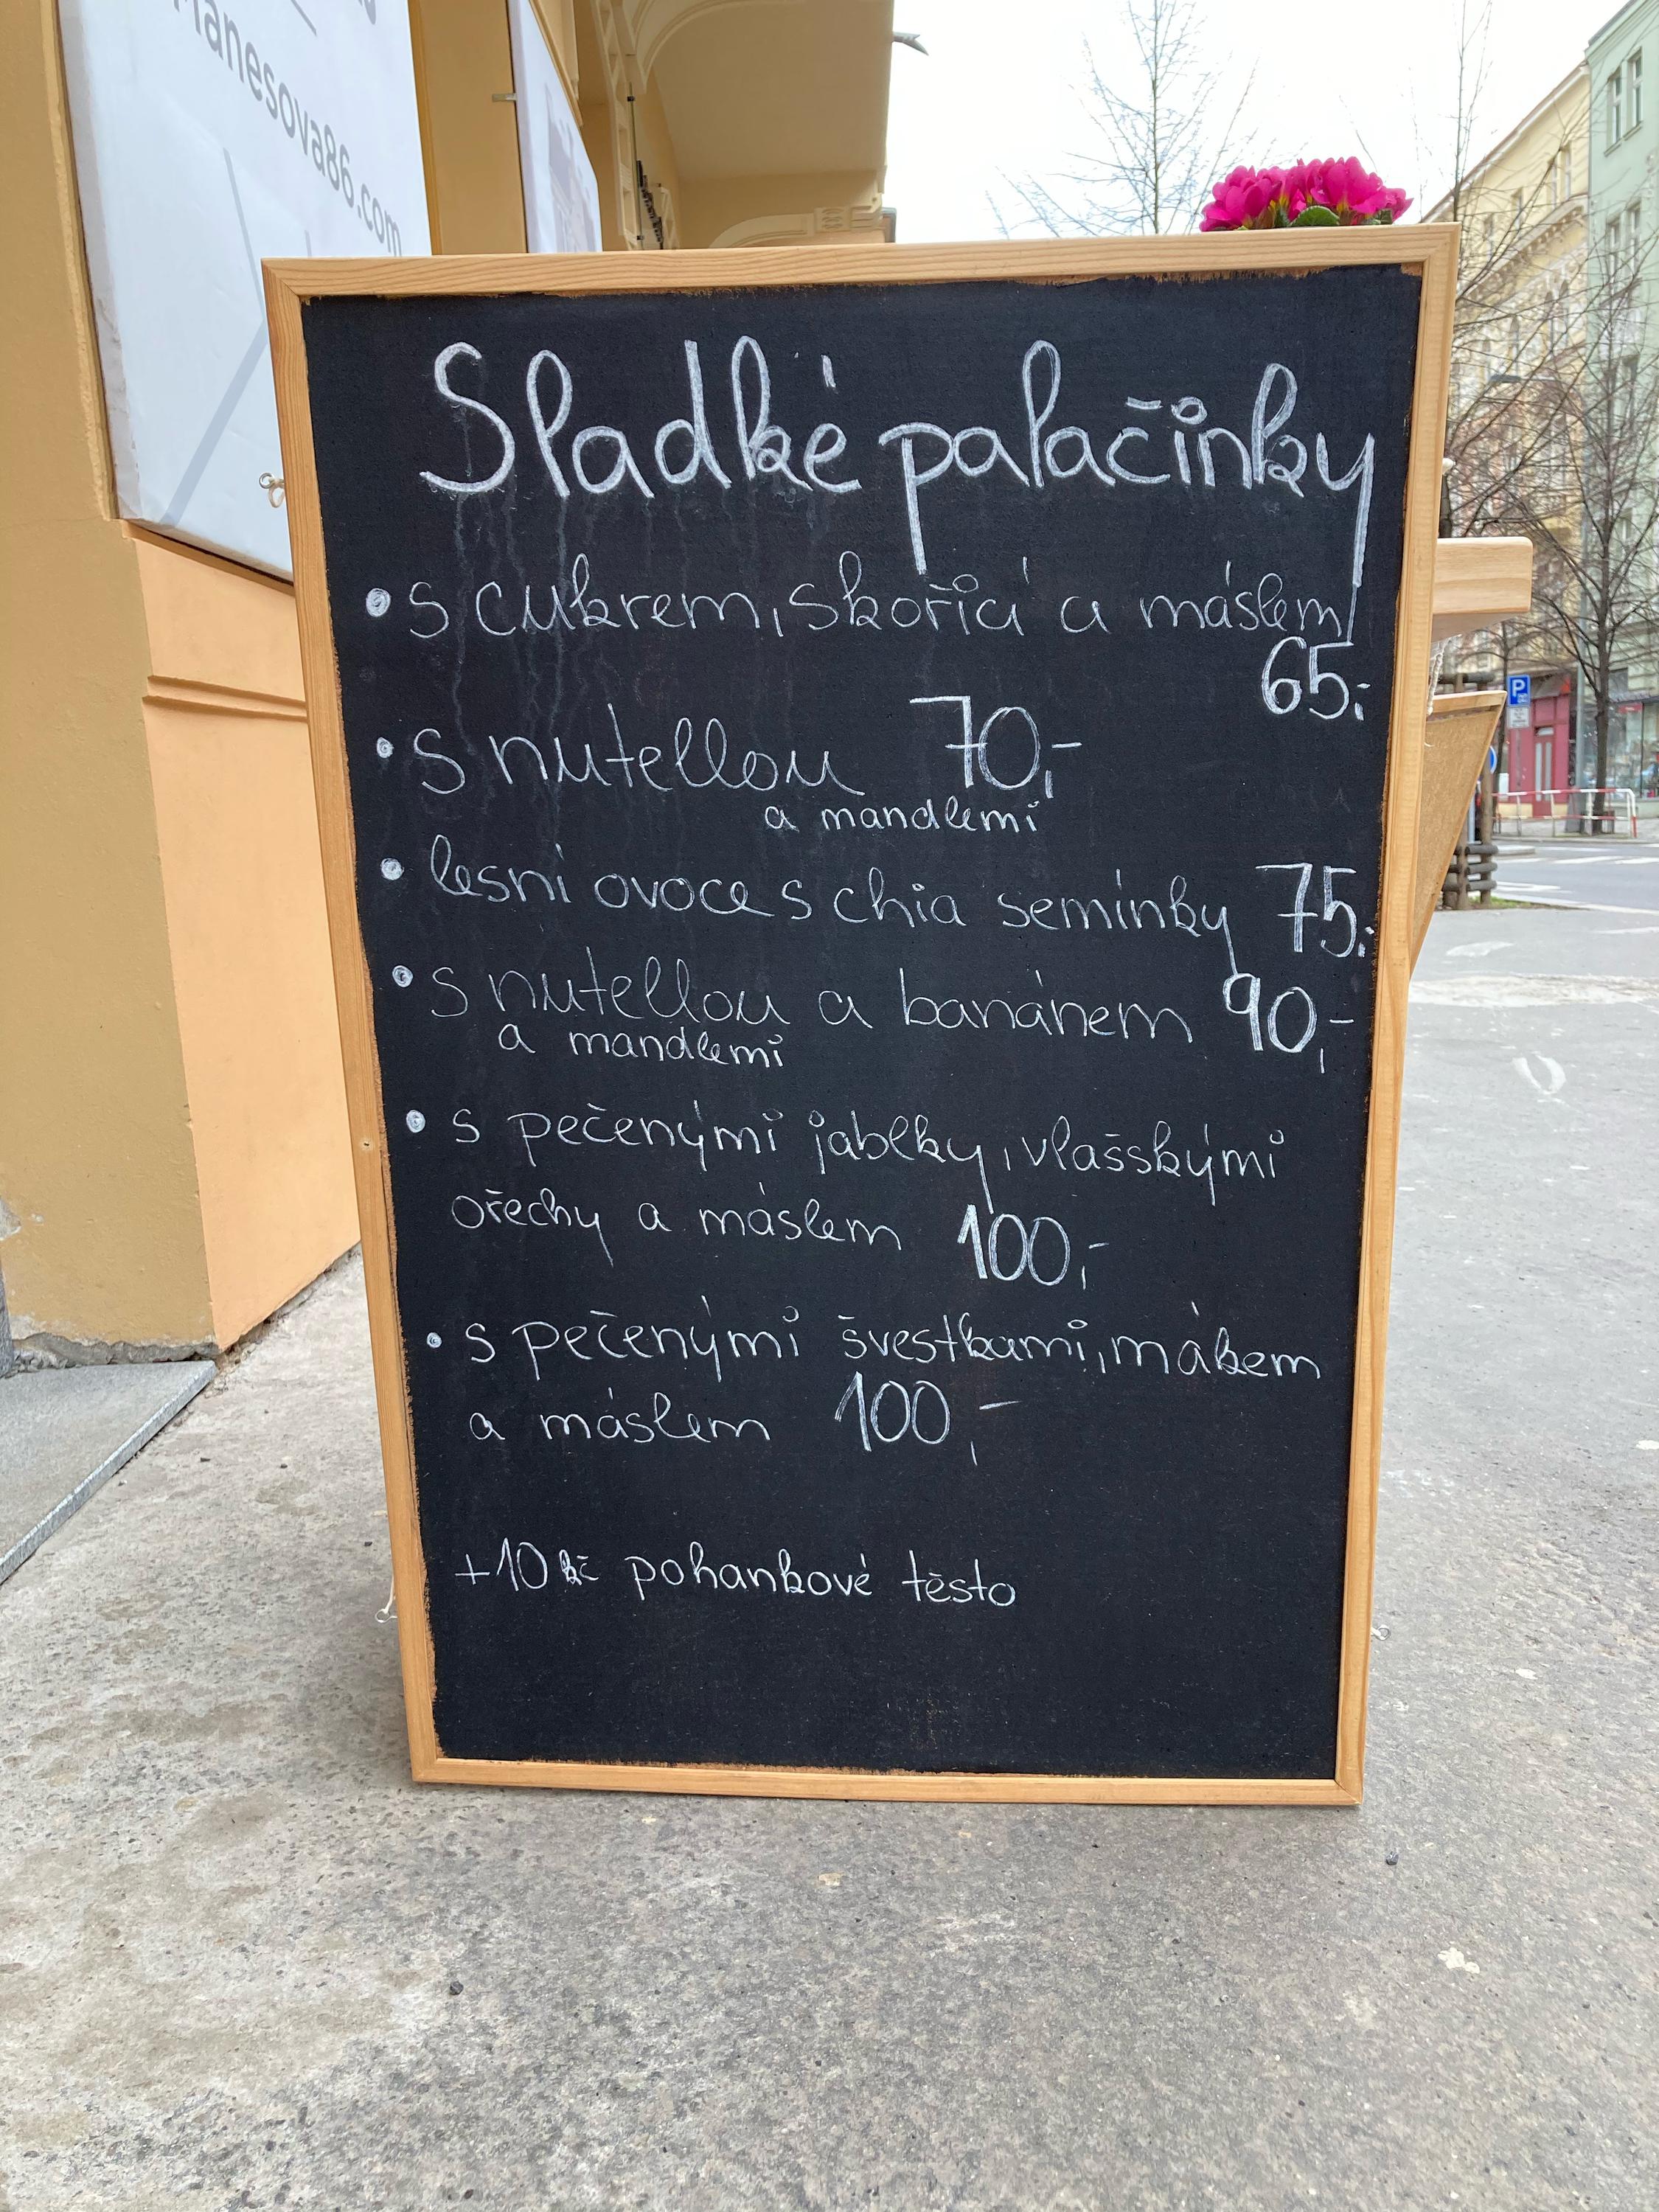 manesova86.com
Sladké palačinky
• s cukrem, skořicí a máslem
65,-
• s nutellou 70,-
a mandlemi
• lesní ovoce s chia semínky 75,-
• s nutellou a banánem 90,-
a mandlemi
• s pečenými jablky, vlašskými
ořechy a máslem 100,-
• s pečenými švestkami, mákem
a máslem 100,-
+10 kč pohankové těsto
P